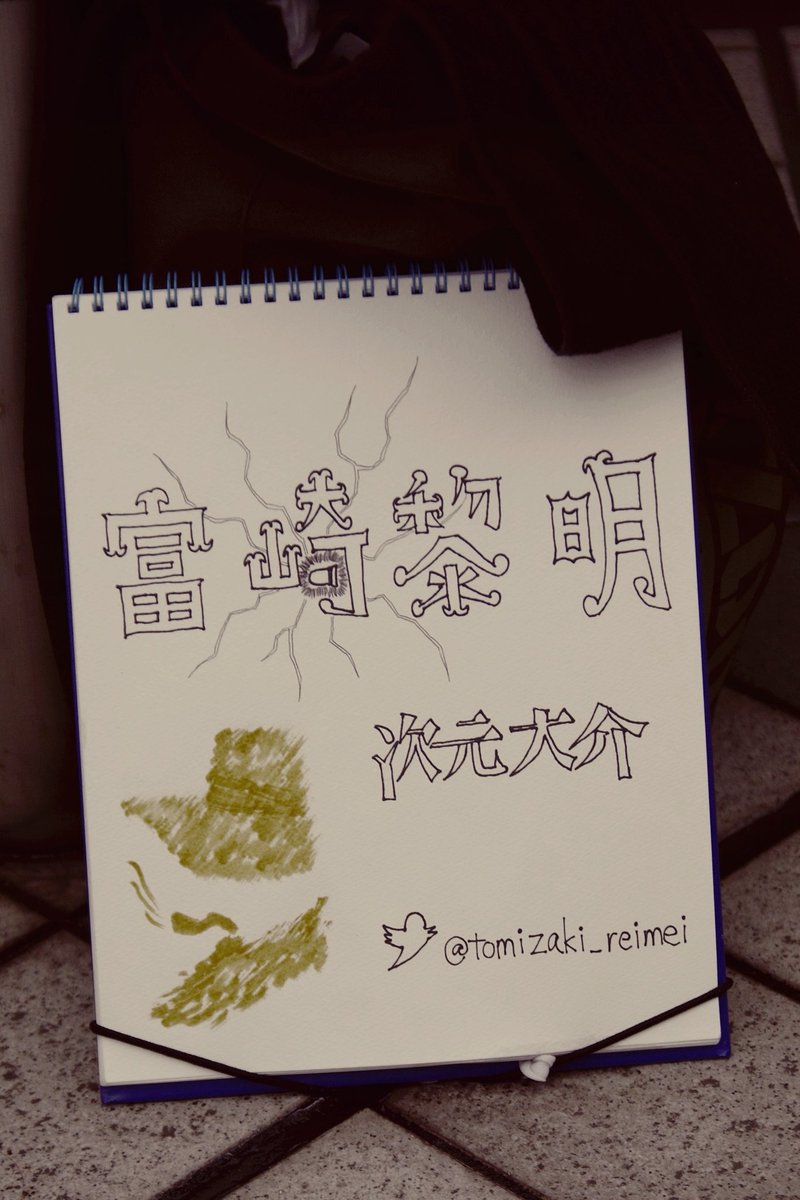 富崎黎明
次元大介
@tomizaki_reimei